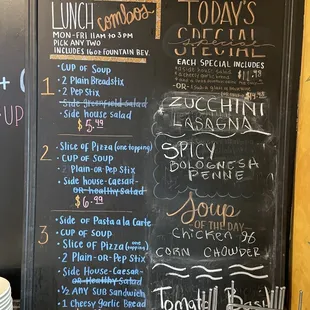 LUNCH combos
MON-FRI 11AM to 3PM
PICK ANY TWO
INCLUDES 16OZ FOUNTAIN BEV.
1
· CUP OF SOUP
· 2 Plain Breadstix
· 2 Pep Stix
· Side Greenfield Salad
· Side house Salad
$5.99
2
· Slice of Pizza (one topping)
· CUP OF SOUP
· 2 Plain-or-Pep Stix
· Side House-Caesar-
or-healthy Salad
$6.99
3
· Side of Pasta a la Carte
· CUP OF SOUP
· Slice of Pizza (one topping)
· 2 Plain-or-Pep Stix
· Side House-Caesar-
or-Healthy Salad
· 1/2 Any Sub Sandwich
· 1 Cheesy Garlic Bread
TODAY'S
Special
EACH SPECIAL INCLUDES
ZUCCHINI
LASAGNA
SPICY
BOLOGNESA
PENNE
Soup
OF THE DAY
Chicken 96
CORN CHOWDER
Tomato Basil
UP